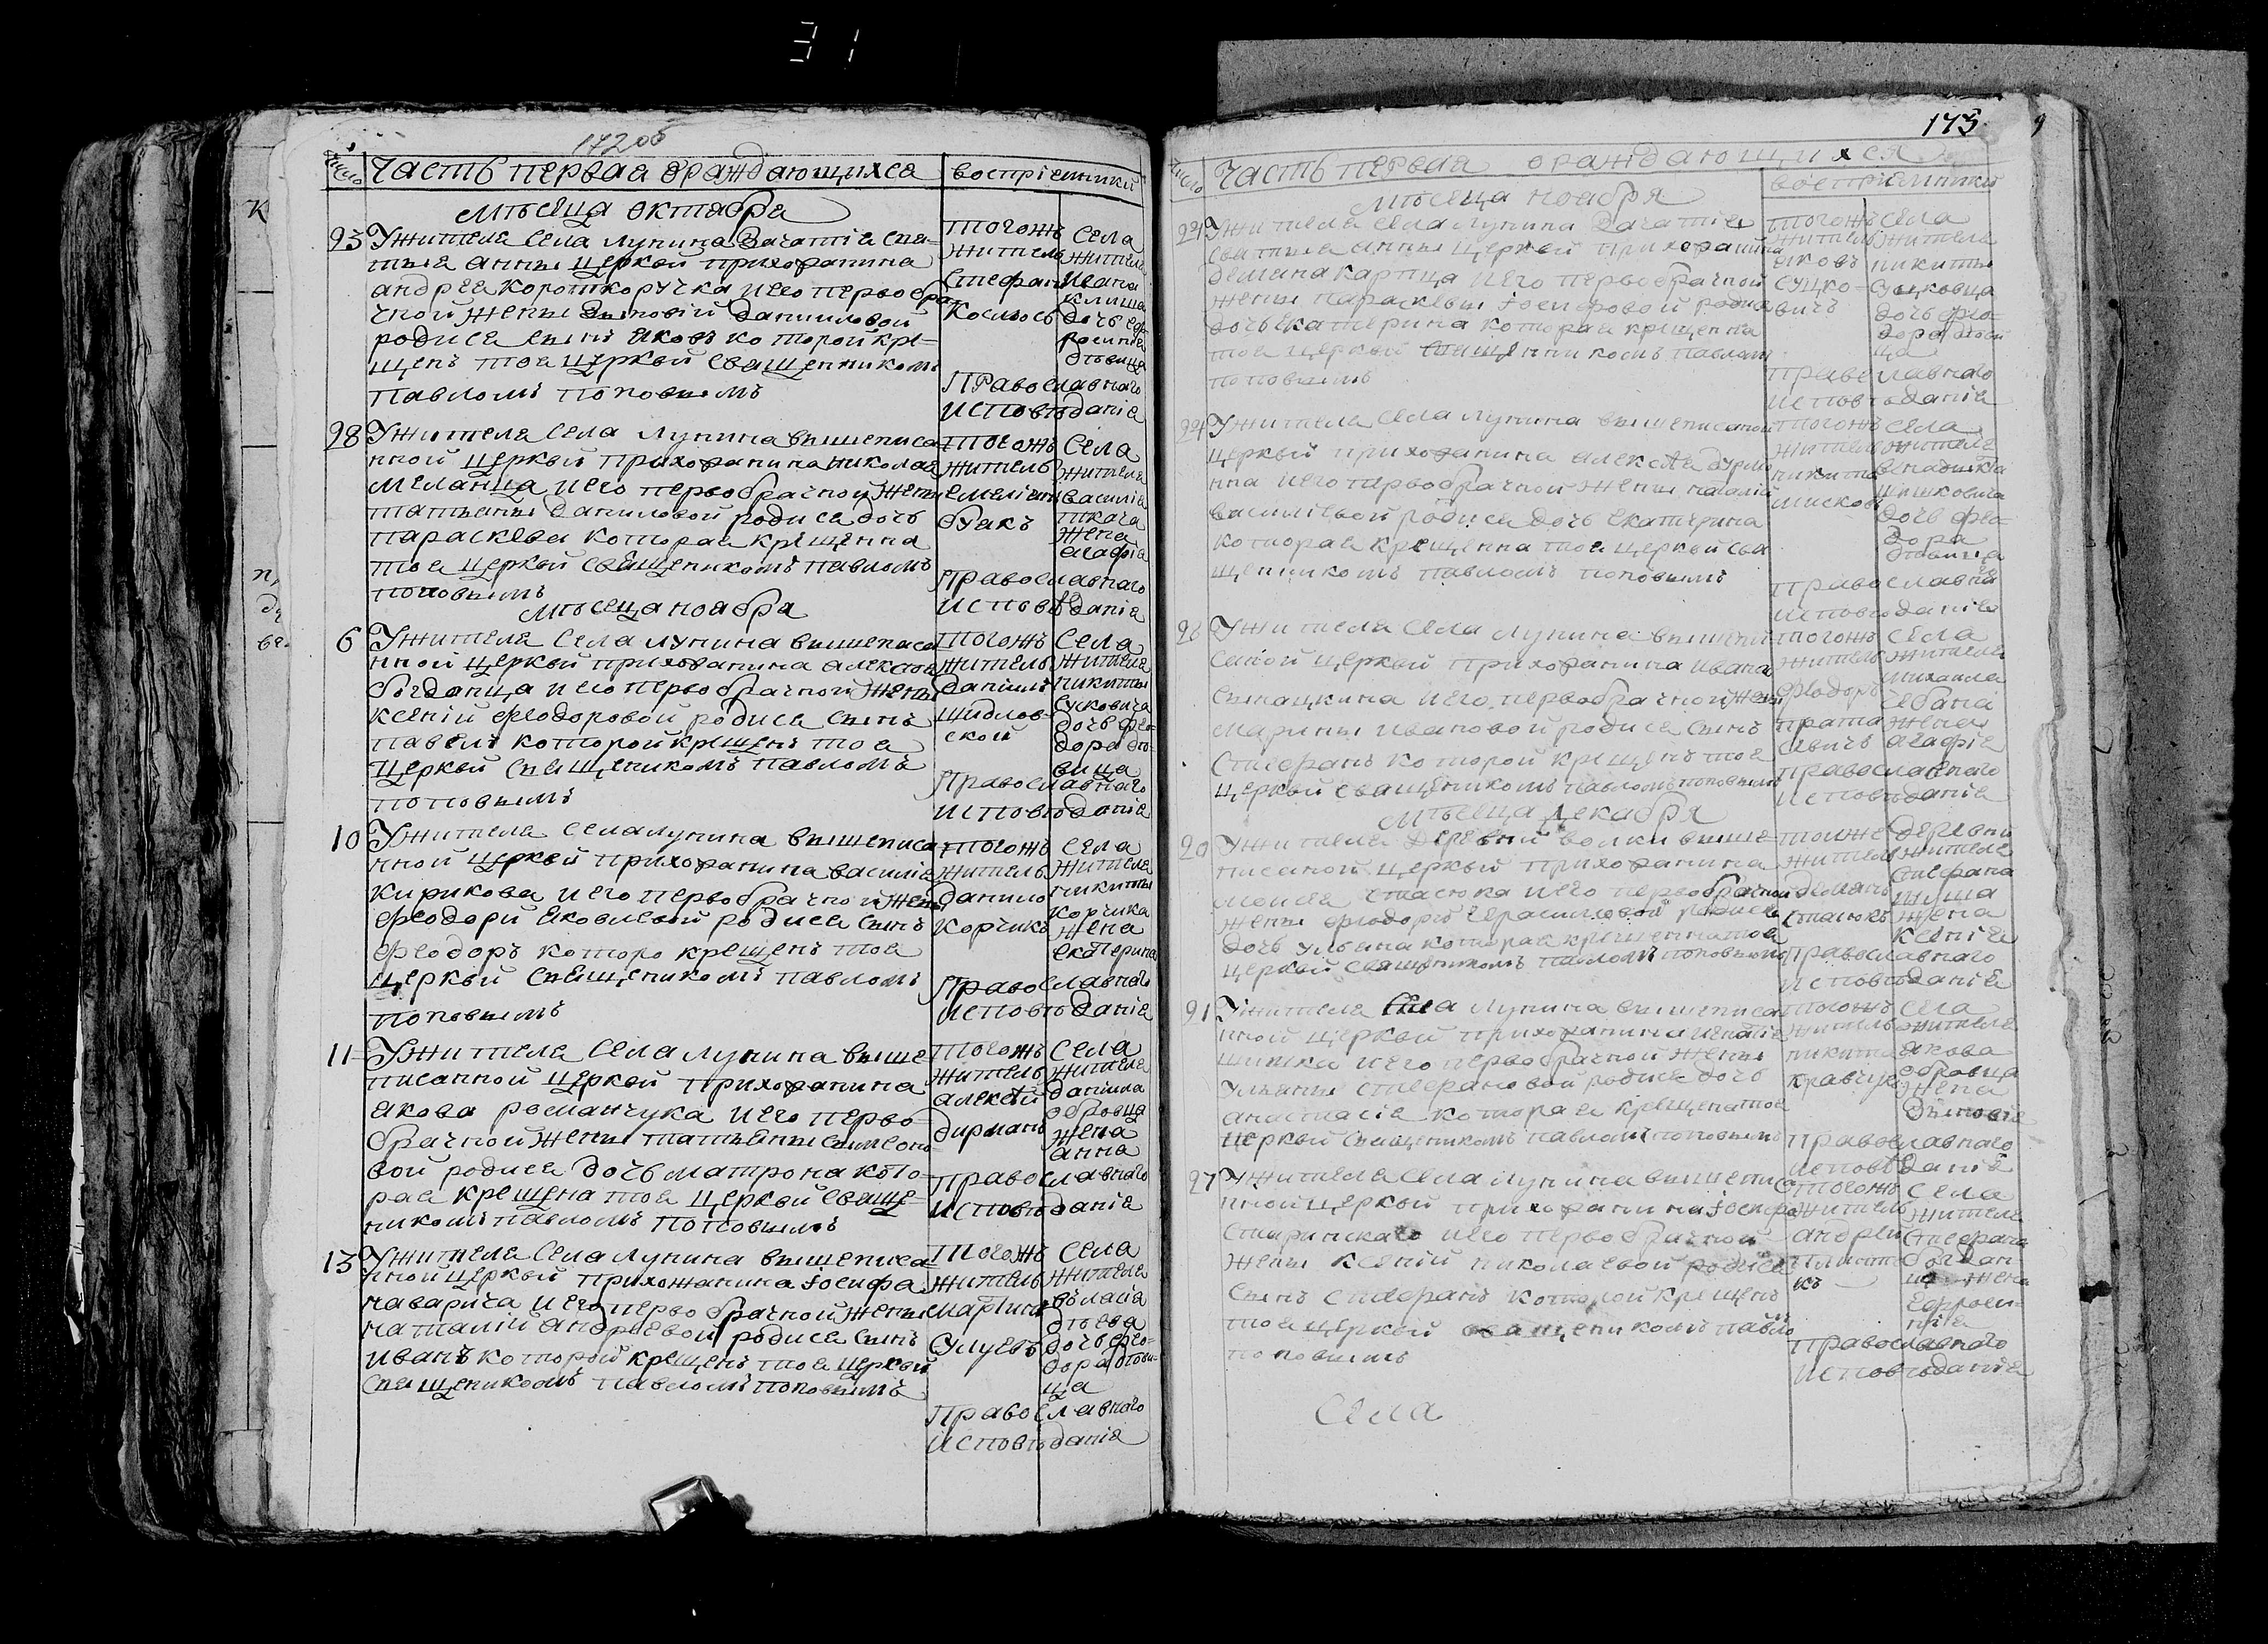 31
172 об
число
Часть первая ораждающихся
восприемники
Мѣсяца октабра
23
Ужителя села лунина Зачатія свя-
тыя анны церкви прихожанина
андрея короткоручка иего первобра
чной жены Зѣновіи даниловой
родися сынъ яковъ которой кре-
щенъ тоя церкви священникомъ
Павломъ поповымъ
тогожъ
житель
Стефанъ
Космось
села
жителя
ивана
клища
дочь еф-
росиніа
дѣвица
Православнаго
исповѣданіа
28
Ужителя села лунина вышеписа
нной церкви прихожанина николая
меланца иего первобрачной жены
татьяны даниловой родися дочь
параскева которая крещенна
тоя церкви священикомъ павломъ
поповымъ
тогожъ
житель
емеліанъ
буякъ
села
жителя
василіа
ткача
жена
агафіа
Православнаго
исповѣданіа
Мѣсяца ноабра
6
Ужителя села лунина вышеписа
нной церкви прихожанина алексѣя
богданца иего первобрачной жены
ксеніи феодоровой родися сынъ
павелъ которой крещенъ тоя
церкви священикомъ павломъ
поповымъ
тогожъ
житель
даніилъ
щидлов-
ской
села
жителя
никиты
сусковича
дочь фео-
дора дѣ-
вица
Православнаго
исповѣданіа
10
Ужителя села лунина вышеписа
нной церкви прихожанина василіа
кирикова иего первобрачной жены
феодори яковлевой родися сынъ
феодоръ которо крещенъ тоя
церкви священикомъ павломъ
поповымъ
тогожъ
житель
данило
корчикъ
села
жителя
никиты
корчика
жена
екатерина
Православнаго
исповѣданіа
11
Ужителя села лунина выше-
писанной церкви прихожанина
якова романчука иего перво-
брачной жены татьяны симеоно-
вой родися дочь матрона кото-
рая крещена тоя церкви свяще-
никомъ павломъ поповымъ
тогожъ
житель
алексѣй
дирманъ
села
жителя
даніила
обровца
жена
анна
православнаго
исповѣданіа
13
Ужителя села лунина вышеписа-
нной церкви прихожанина іосифа
чаварича иего первобрачной жены
наталіи андреевой родися сынъ
иванъ которой крещенъ тоя церкви
священикомъ павломъ поповымъ
тогожъ
житель
мартинъ
Сулуевъ
села
жителя
власіа
дѣева
дочь фео-
дора дѣви-
ца
Православнаго
исповѣданіа
173
число
Часть первая ораждающихся
восприемники
Мѣсяца ноабря
Ужителя села лунина Зачатіа
святыя анны церкви прихожанина
демиана карпца иего первобрачной
жены параскевы іосифовой родися
дочь екатерина которая крещенна
тоя церкви священникомъ павломъ
поповымъ
тогожъ
житель
яковъ
сушко-
вичъ
села
жителя
никиты
дочь фео-
дора дѣви
ца
православнаго
исповѣданіа
24
Ужителя села лунина вышеписаной
церкви прихожанина алексѣя
иего первобрачной жены наталіи
василіевой родися дочь екатерина
которая крещенна тоя церкви свя
щенникомъ павломъ поповымъ
тогожъ
житель
никита
села
жителя
шишковича
дочь фео-
дора
дѣвица
православна
исповѣданіа
26
Ужителя села лунина вышепи
саной церкви прихожанина ивана
иего первобрачной жены
марины ивановой родися сынъ
Стефанъ которой крещенъ тоя
церкви священикомъ павломъ поповымъ
тогожъ
житель
феодоръ
села
жителя
михаила
жена
агафіа
православнаго
исповѣданіа
Мѣсяца декабря
20
Ужителя деревни волки выше-
писаной церкви прихожанина
моисея стасюка иего первобрачной
жены феодоры герасимовой родися
дочь ульяна которая крещенна тоя
церкви священикомъ павломъ поповымъ
тоиже
житель
стасюкъ
деревни
жителя
стефана
жена
ксеніа
православнаго
исповѣданіа
21
Ужителя села лунина вышеписа
нной церкви прихожанина игнатіа
шишка иего первобрачной жены
ульяны стефановой родися дочь
анастасіа которая крещена тоя
церкви священикомъ павломъ поповымъ
тогожъ
житель
никита
кравчукъ
села
жителя
якова
обровца
жена
Зѣновіа
православнаго
исповѣданіа
27
Ужителя села лунина вышепис
нной церкви прихожанина іосифа
Старинскаго иего первобрачной
жены ксеніи николаевой родися
сынъ стефанъ которой крещенъ
тоя церкви священикомъ павло
поповымъ
тогожъ
житель
андрей
села
жителя
стефана
богдан-
ца жена
ефроси-
ніа
православнаго
исповѣданіа
Села